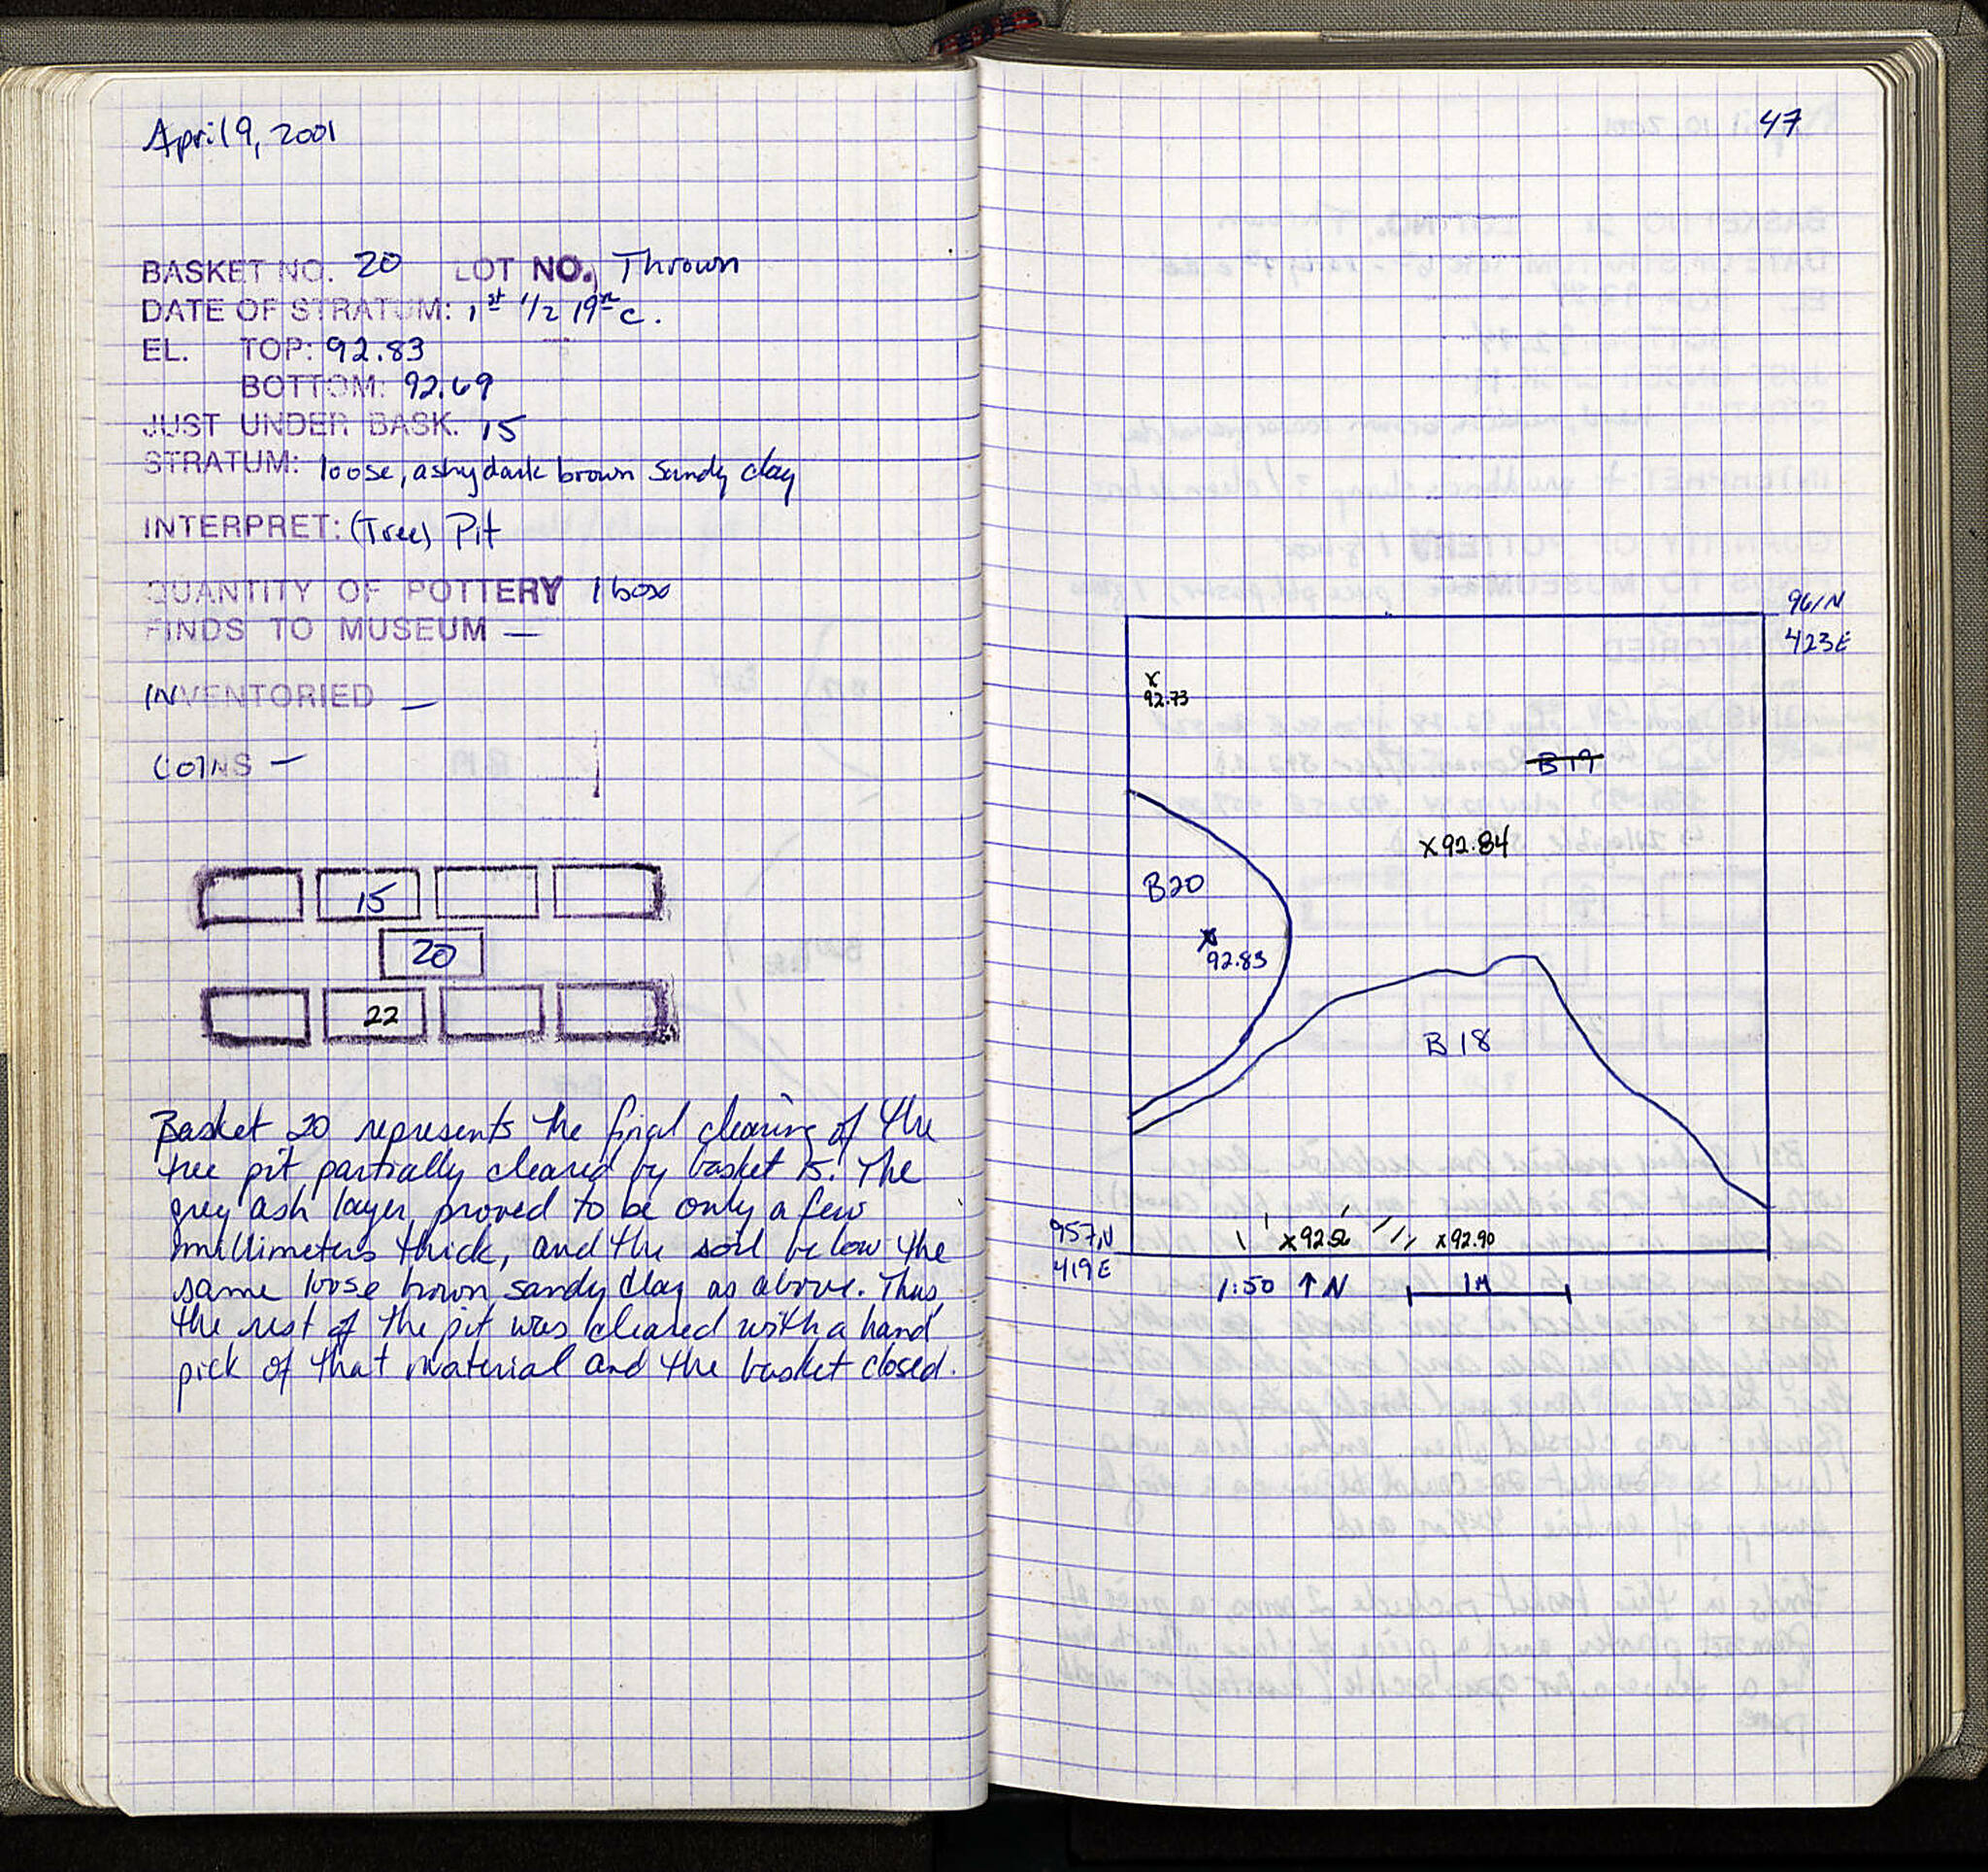 April 9, 2001
BASKET NO. 20 LOT NO. Thrown
DATE OF STRATUM: 1st 1/2 19th c.
EL. TOP: 92.83
BOTTOM: 92.69
JUST UNDER BASK. 15
STRATUM: loose, ashy dark brown sandy clay
INTERPRET: (Tree) Pit
QUANTITY OF POTTERY 1 box
FINDS TO MUSEUM —
INVENTORIED —
COINS —
15
20
22
Basket 20 represents the final clearing of the
tree pit partially cleared by basket 15. The
grey ash layer proved to be only a few
millimeters thick, and the soil below the
same loose brown sandy clay as above. Thus,
the rest of the pit was cleared with a hand
pick of that material and the basket closed.
47
961N
423E
x
92.73
B19
x92.84
B20
x
92.83
B18
957N
419E
x92.90
1:50 ↑N 1M